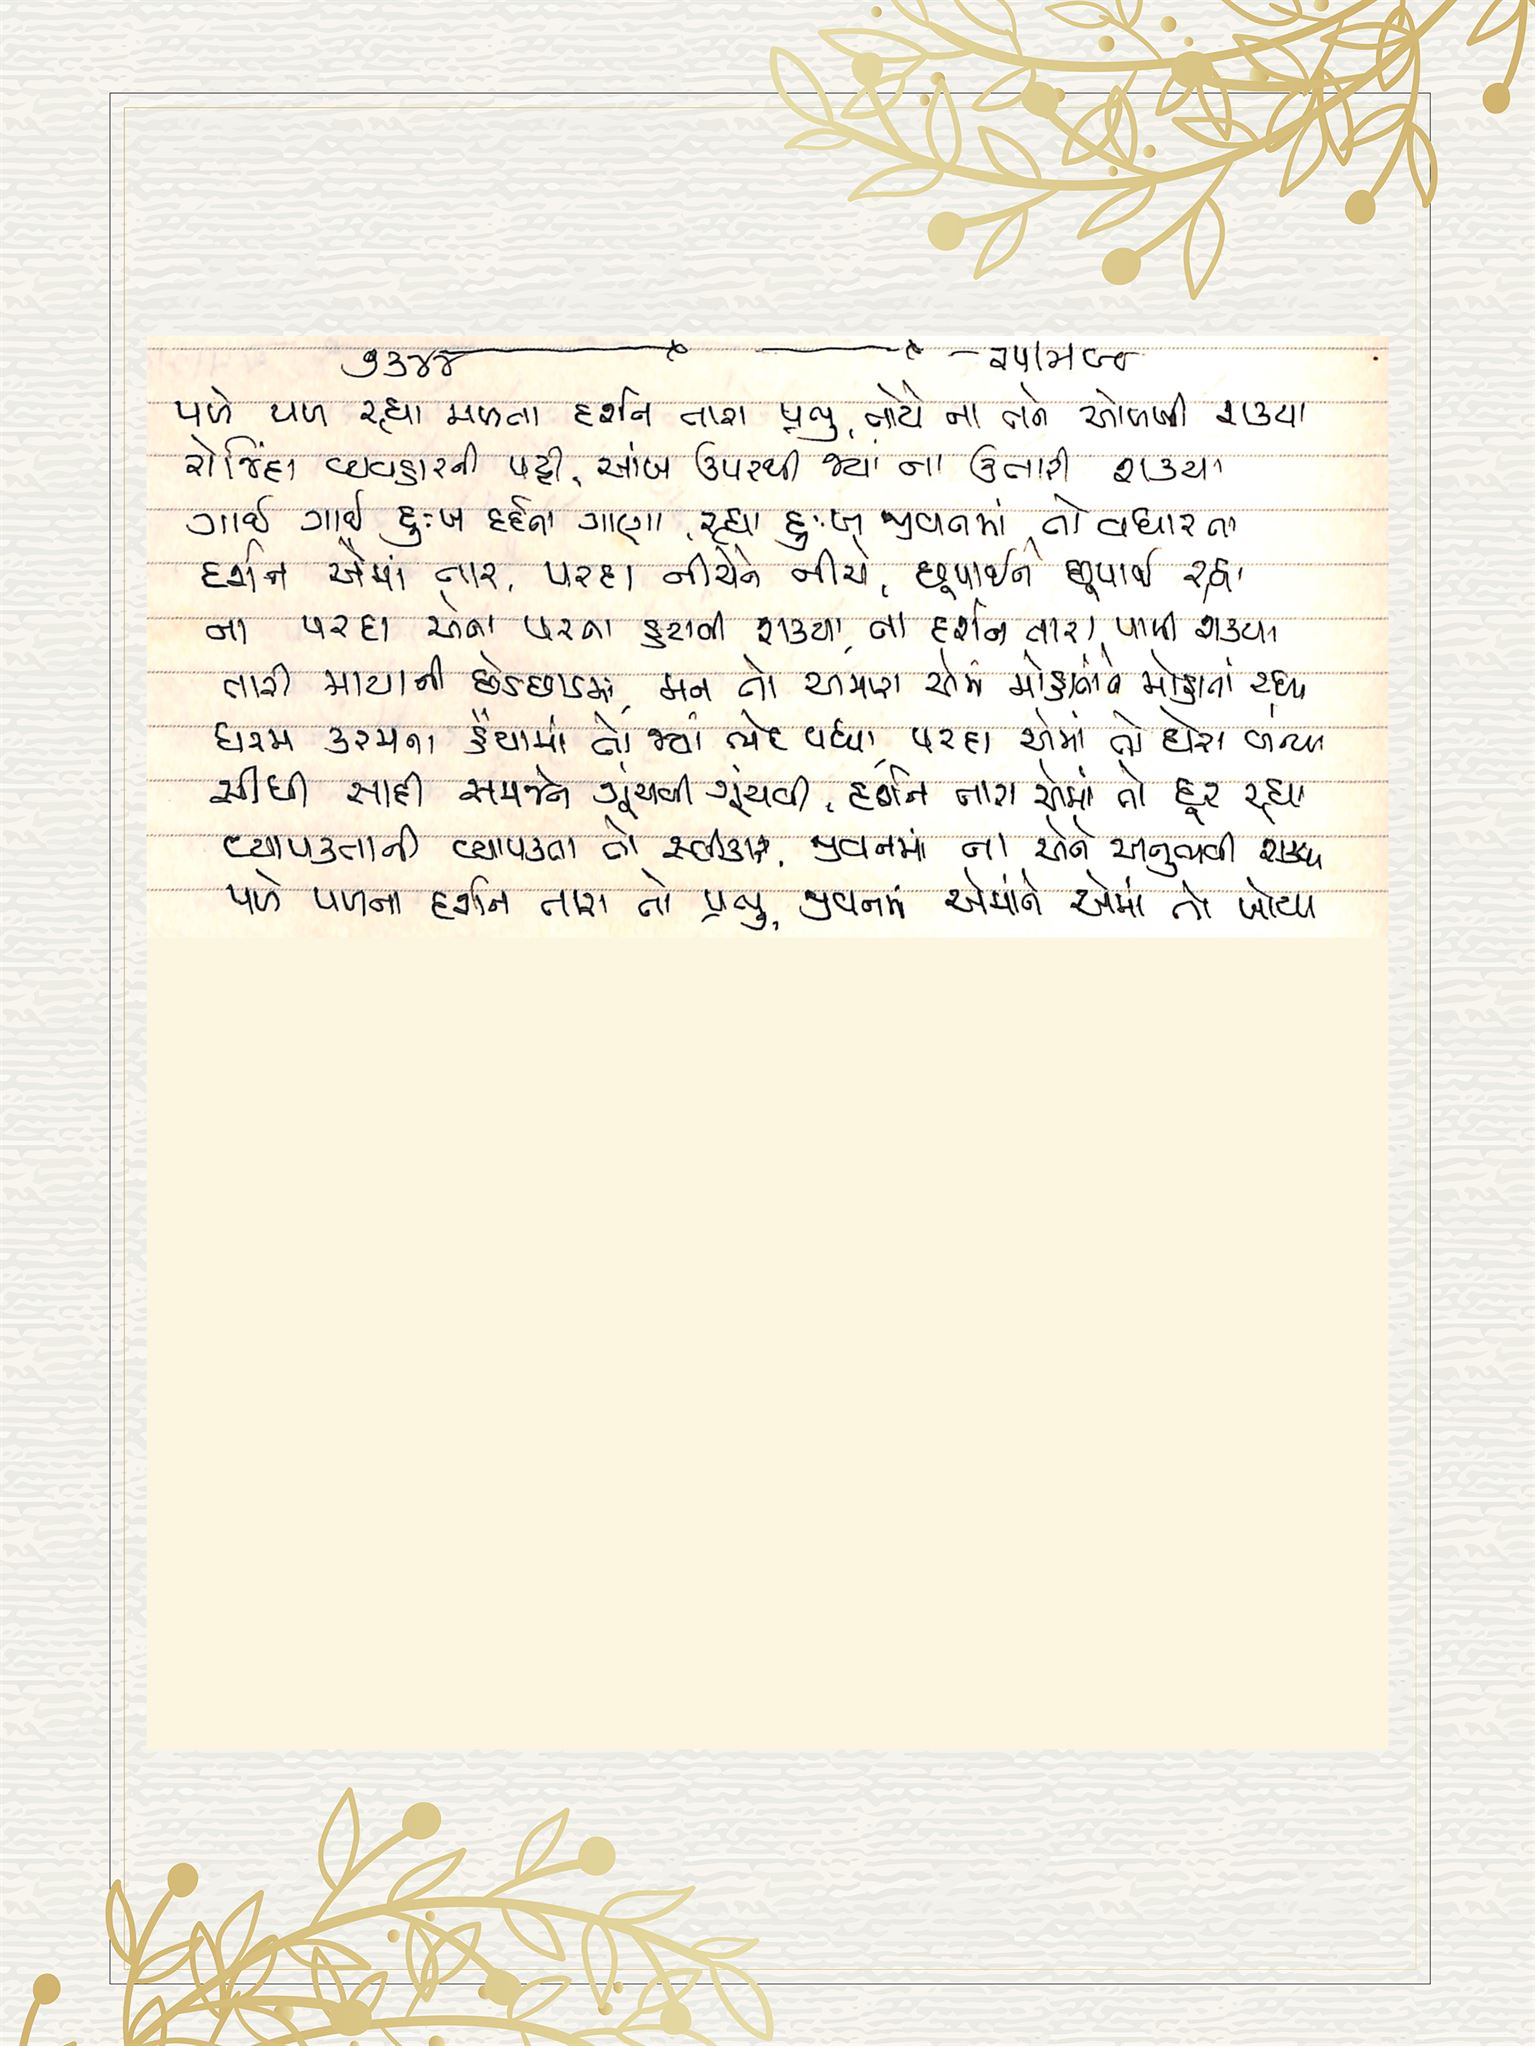 ૭૩૪૪
પળે પળ રહ્યા મળતા દર્શન તારા પ્રભુ, તોયે ના તને ઓળખી શક્યા
રોજિંદા વ્યવહારની પટ્ટી, આંખ ઉપરથી જ્યાં ના ઉતારી શક્યા
ગાઈ ગાઈ દુઃખ દર્દના ગાણા, રહ્યા દુઃખ જીવનમાં તો વધારતા
દર્શન એમાં તારા, પરદા નીચેને નીચે, છૂપાઈને છૂપાઈ રહ્યા
ના પરદા એના પરના હટાવી શક્યા, ના દર્શન તારા પામી શક્યા
તારી માયાની છેડછાડમાં, મન તો અમારા એમાં મોહાતાંને મોહાતાં રહ્યા
ધરમ કરમના હૈયામાં તો જ્યાં ભેદ વધ્યા, પરદા એમાં તો ઘેરા બન્યા
સીધી સાદી સમજને ગૂંચવી ગૂંચવી, દર્શન તારા એમાં તો દૂર રહ્યા
વ્યાપકતાની વ્યાપકતા તો સ્વીકારી, જીવનમાં ના એને અનુભવી શક્યા
પળે પળના દર્શન તારા તો પ્રભુ, જીવનમાં એમાંને એમાં તો ખોયા